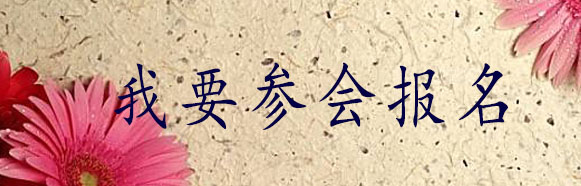 我要参会报名